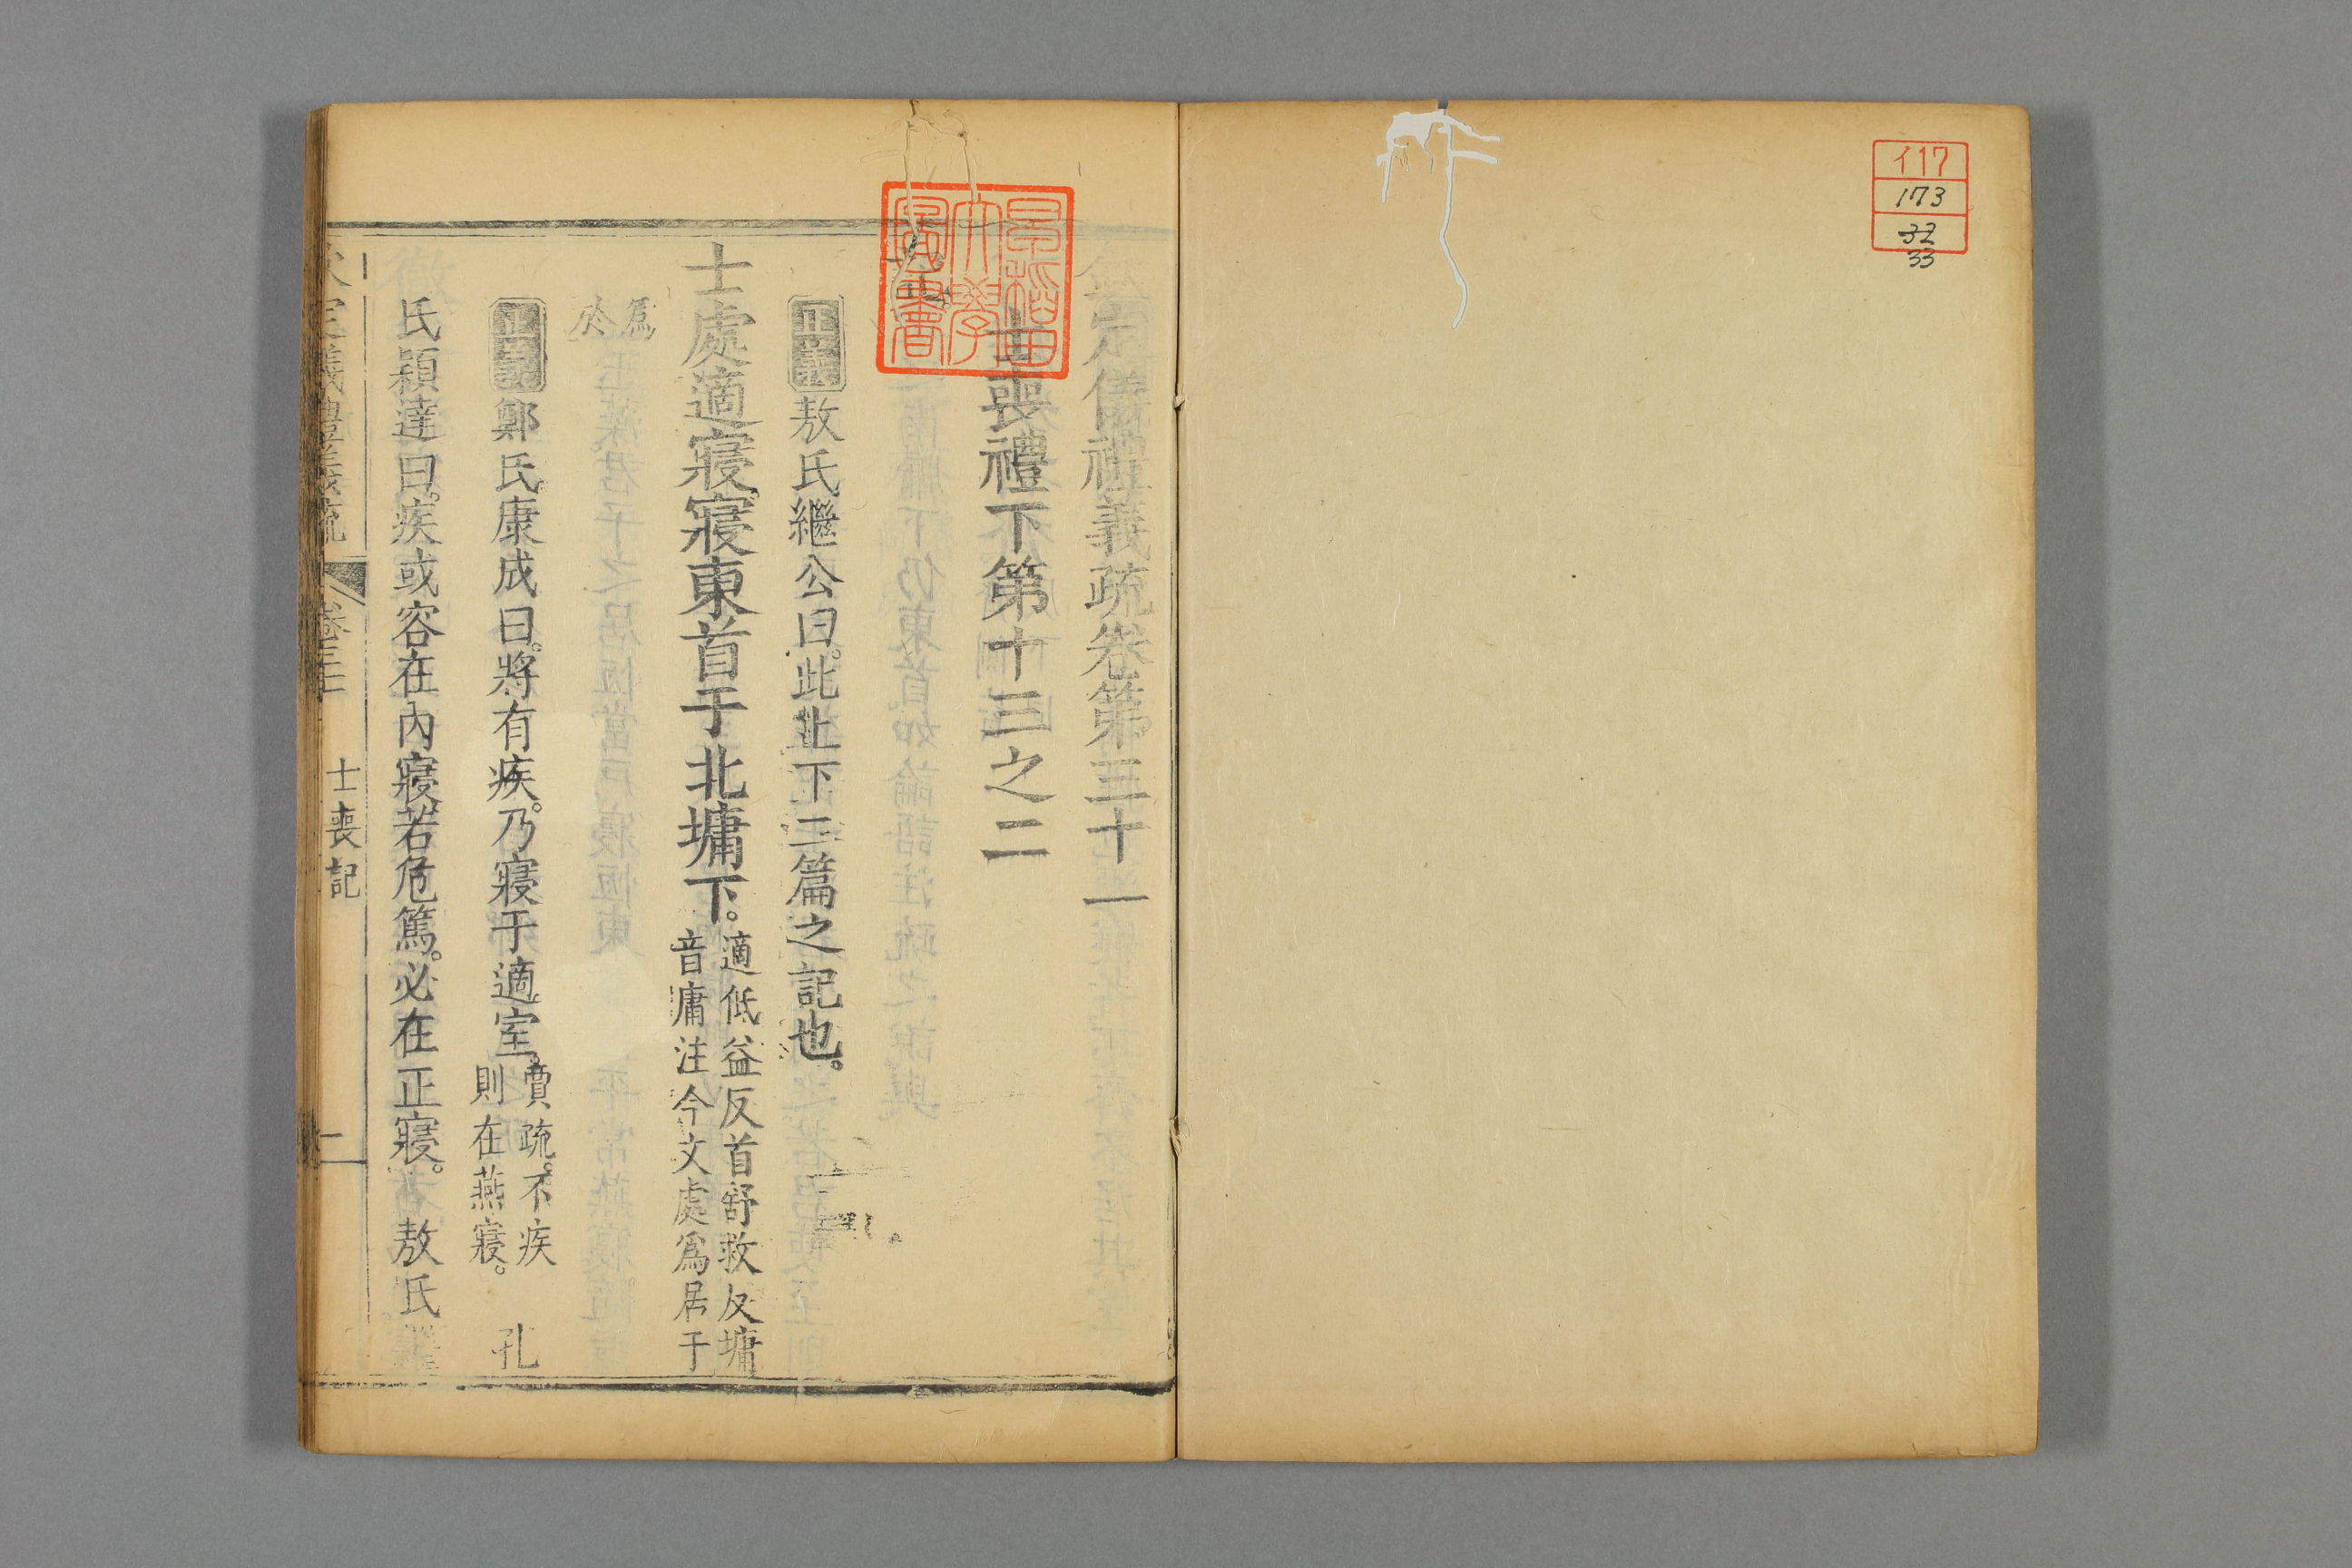 イ17
173
32
33
欽定儀禮義疏卷第三十一
士喪禮下第十三之二
早稻田大學圖書
記
正義敖氏繼公曰。此上下二篇之記也。
士處適寢。寢東首于北墉下。適低益反首舒救反墉
音庸注今文處爲居于
爲
於
正義鄭氏康成曰。將有疾。乃寢于適室。賈疏。不疾
則在燕寢。孔
氏穎達曰。疾或容在內寢。若危篤。必在正寢。敖氏
欽定儀禮義疏 卷三十一 士喪記 一